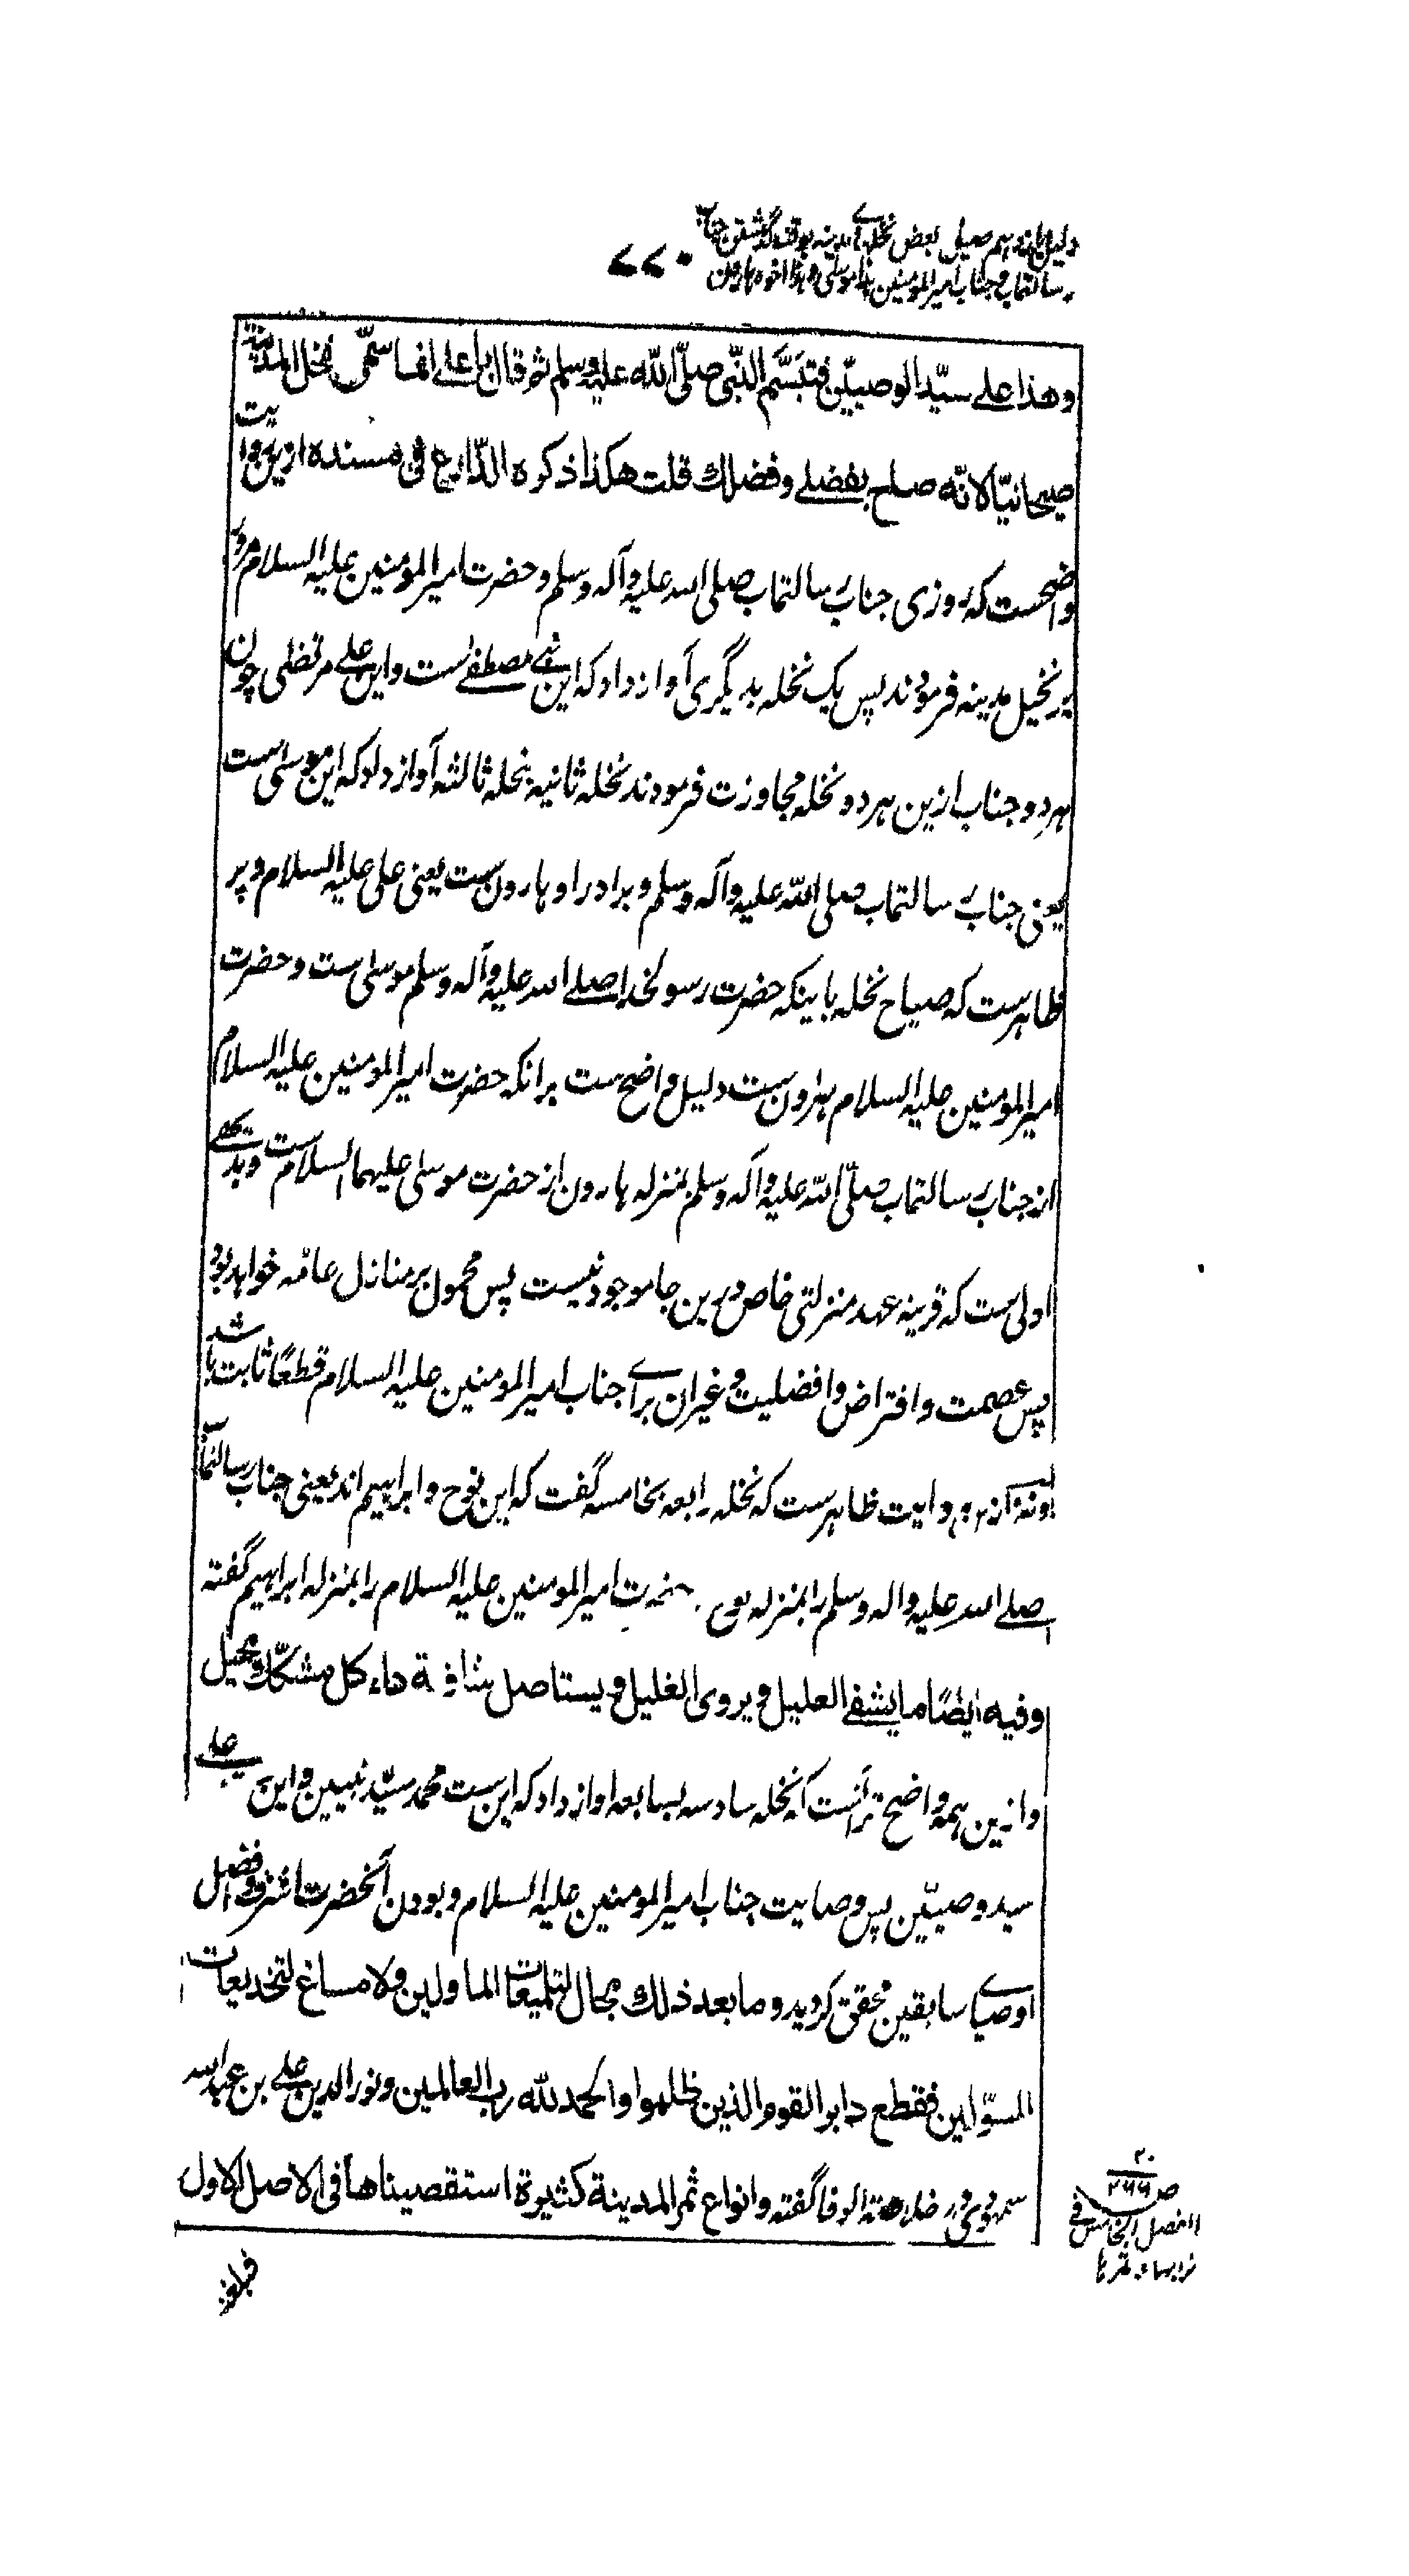 دلیل یازدهم صیاح بعض نخلهای مدینه بوقت گذشتن جناب
رسالتمآب و جناب امیرالمومنین هذا موسی و هذا اخوه هارون
۷۷۰
وهذا علی سیّد الوصیّین فتبسَّم النّبی صلّی اللّه علیه وسلم ثم قال یا علی انما سمّی نخل المدینة
صیحانیّا لانّه صاح بفضلی وفضلك قلت هكذا ذكره الذّارع فی مسنده ازین روایت
واضحست که روزی جناب رسالتمآب صلی الله علیه وآله وسلم وحضرت امیرالمؤمنین علیه السلام مرور
بر نخیل مدینه فرمودند پس یک نخله بدیگری آواز داد که این نبی مصطفی ست واین علی مرتضی چون
هر دو جناب ازین هر دو نخله مجاوزت فرمودند نخله ثانیه بنخله ثالثه آواز داد که این موسی است
یعنی جناب رسالتمآب صلی اللّه علیه وآله وسلم وبرادر او هارون ست یعنی علی علیه السلام وپر
ظاهرست که صیاح نخله باینکه حضرت رسولخدا صلی الله علیه وآله وسلم موسی ست وحضرت
امیرالمومنین علیه السلام هارون ست دلیل واضح ست برانکه حضرت امیرالمومنین علیه السلام
از جناب رسالتمآب صلّی اللّه علیه وآله وسلم بمنزله هارون از حضرت موسی علیهما السلام ست وبدیهی
اولی ست که قرینه عهد منزلتی خاص درین جا موجود نیست پس محمول بر منازل عامّه خواهد بود
پس عصمت وافتراض وافضلیت وغیران برای جناب امیرالمومنین علیه السلام قطعًا ثابت باشد
روایت ظاهرست که نخله رابعه بخامسه گفت که این نوح وابراهیم اند یعنی جناب رسالتمآب
صلی الله علیه واله وسلم را بمنزله نوح وحضرت امیرالمومنین علیه السلام را بمنزله ابراهیم گفته
وفیه ایضًا ما یشفی العلیل ویروی الغلیل ویستاصل شافة داء كل مشكّك ومحیل
وازین همه واضح تر آنست که نخله سادسه بسابعه اواز داد که این ست محمد سیّد نبیین واین علی
سید وصیّین پس وصایت جناب امیرالمومنین علیه السلام وبودن آنحضرت اشرف وافضل
اوصیای سابقین محقق گردید وما بعد ذلك مجال لتلمیعات الماولین ولا مساغ لتخدیعات
المسوّلین فقطع دابر القوم الذین ظلموا والحمد للّه رب العالمین ونور الدین علی بن عبد الله
سمهودی در خلاصة الوفا گفته وانواع تمر المدینة كثیرة استقصیناها فی الاصل الاول
فبلغت
۲۰
ص ۲۶۶
الفصل الخامس فی
ترابها وتمرها